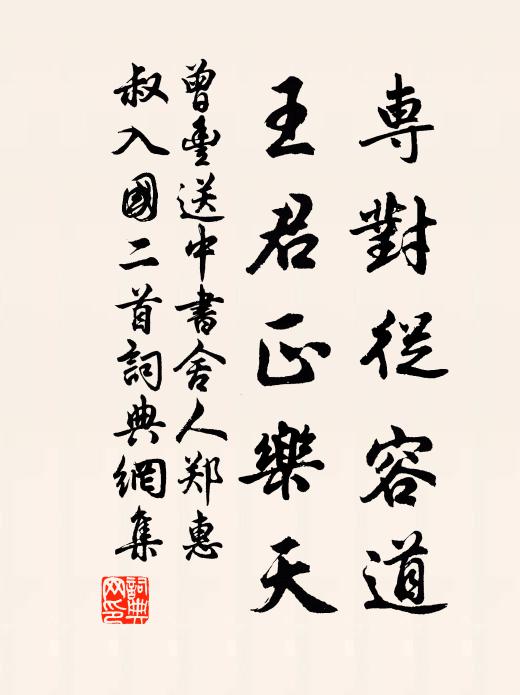 專對從容道
王君正樂天
曾豐送中書舍人郑惠
叔入國二首詞典網集
詞典網印